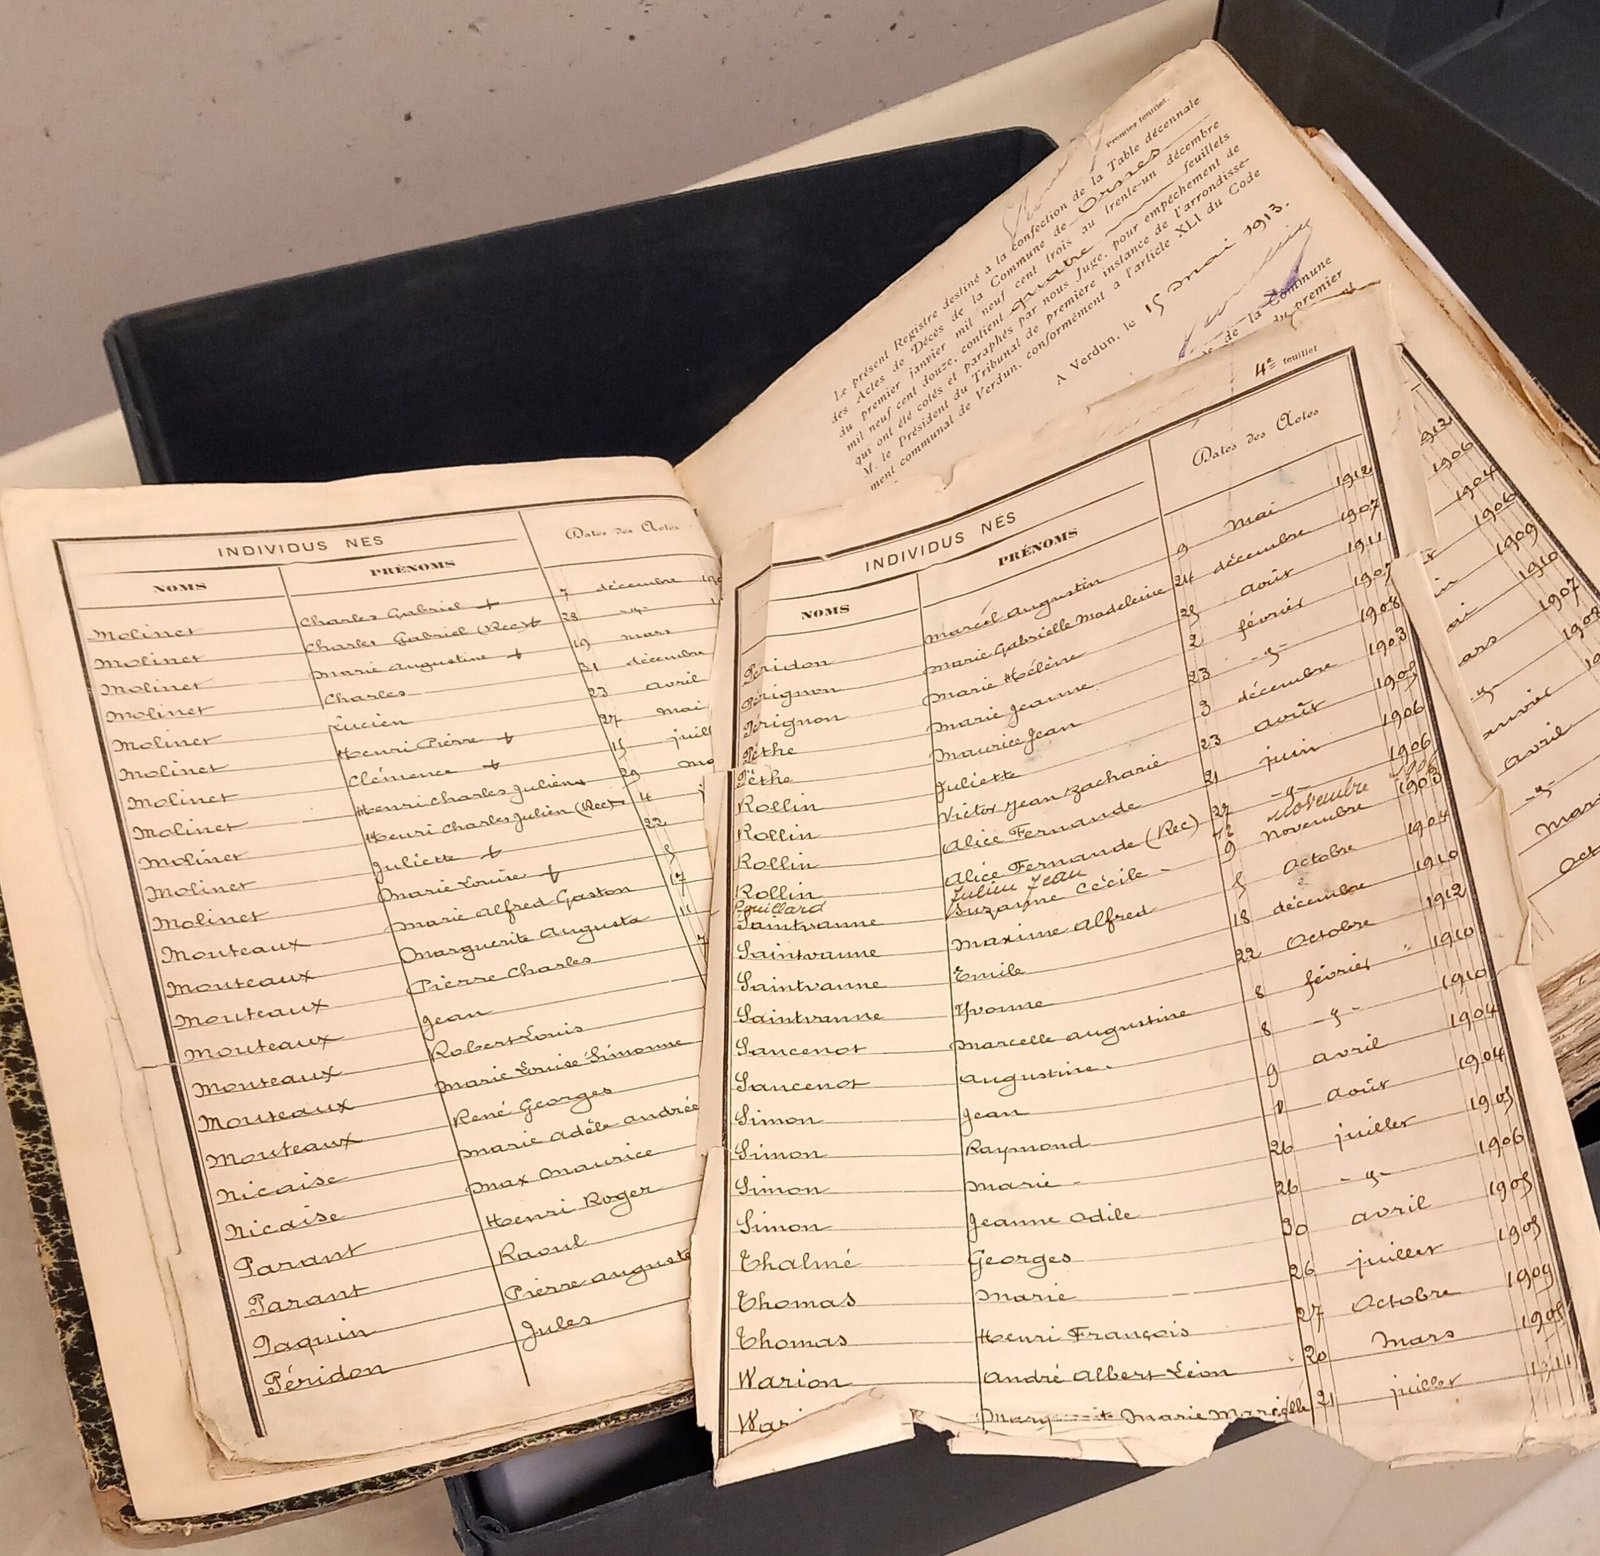 Premier feuillet.
Le présent Registre destiné à la confection de la Table décennale
des Actes de Décès de la Commune de Ornes
du premier janvier mil neuf cent trois au trente-un décembre
mil neuf cent douze, contient quatre feuillets
qui ont été cotés et paraphés par nous Juge, pour empêchement de
M. le Président du Tribunal de première instance de l'arrondisse-
ment communal de Verdun, conformément à l'article XLI du Code
A Verdun, le 15 mai 1913.
de la Commune
du premier
INDIVIDUS NES
Dates des Actes
NOMS PRÉNOMS
Molinet Charles Gabriel + 7 décembre
Molinet Charles Gabriel (Rec) + 28 -"-
Molinet Marie Augustine + 19 mars
Molinet Charles 21 décembre
Molinet Lucien 23 avril
Molinet Henri Pierre + 27 mai
Molinet Clémence + 15 juill
Molinet Henri Charles Julien + 29
Molinet Henri Charles Julien (Rec) + 4
Molinet Juliette + 22
Molinet Marie Louise +
Mouteaux Marie Alfred Gaston 17
Mouteaux Marguerite Augusta 11
Mouteaux Pierre Charles
Mouteaux Jean
Mouteaux Robert Louis
Mouteaux Marie Louise Simonne
Mouteaux René Georges
Nicaise Marie Adèle Andrée
Nicaise Max Maurice
Parant Henri Roger
Parant Raoul
Paquin Pierre Auguste
Péridon Jules
4e feuillet
INDIVIDUS NES
Dates des Actes
NOMS PRÉNOMS
Péridon Marcel Augustin 9 Mai 1912
Pérignon Marie Gabrielle Madeleine 24 décembre 1907
Pérignon Marie Hélène 25 août 1911
Péthe Marie Jeanne 2 février 1907
Péthe Maurice Jean 23 -"- 1908
Rollin Juliette 3 décembre 1903
Rollin Victor Jean Zacharie 23 août 1905
Rollin Alice Fernande 21 juin 1906
Rollin Alice Fernande (Rec) 27 -"- 1906
Rouillard Julien Jean 12 novembre
Saintvanne Suzanne Cécile 9 novembre 1903
Saintvanne Maxime Alfred 5 octobre 1904
Saintvanne Emile 18 décembre 1910
Saintvanne Yvonne 22 octobre 1912
Sancenot Marcelle Augustine 8 février 1910
Sancenot Augustine 8 -"- 1910
Simon Jean 9 avril 1904
Simon Raymond août 1904
Simon Marie 26 juillet 1905
Simon Jeanne Odile 26 -"- 1906
Thalmé Georges 30 avril 1905
Thomas Marie 26 juillet 1905
Thomas Henri François 27 octobre 1909
Warion André Albert Léon 20 mars
Marie Marcelle 21 juillet 1911
1906
1904
1906
1909
1910
1907
1908
avril
-"-